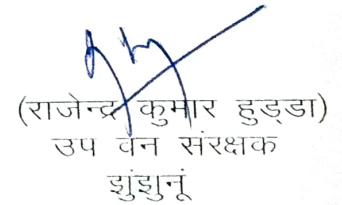 (राजेन्द्र कुमार हुड्डा)
उप वन संरक्षक
झुंझुनूं